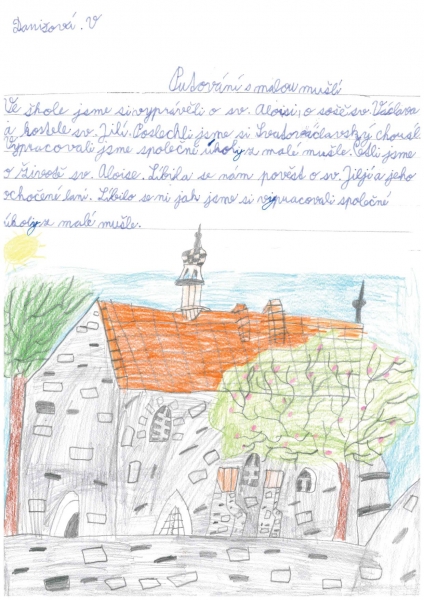 Danišová. V
Putování s malou mušlí
Ve škole jsme si vyprávěli o sv. Aloisi, o soše sv. Václava
a kostele sv. Jiljí. Poslechli jsme si Svatováclavský chorál.
Vypracovali jsme společně úkoly z malé mušle. Četli jsme
o životě sv. Aloise. Líbila se nám pověst o sv. Jiljí a jeho
ochočené lani. Líbilo se mi jak jsme si vypracovali společně
úkoly z malé mušle.